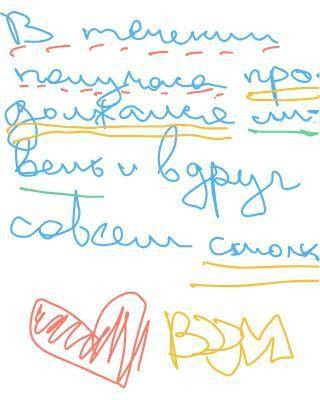 В течении
получаса про-
должался ли-
вень и вдруг
совсем смолк